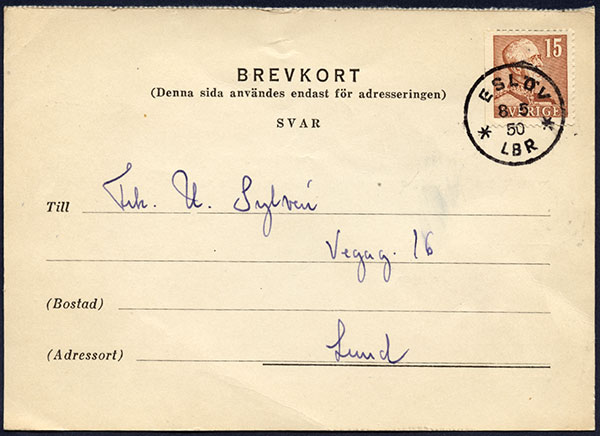 15
SVERIGE
ESLÖV
8.5.
50
LBR
BREVKORT
(Denna sida användes endast för adresseringen)
SVAR
Till Frk. U. Sylvén
Vegag. 16
(Bostad)
(Adressort) Lund